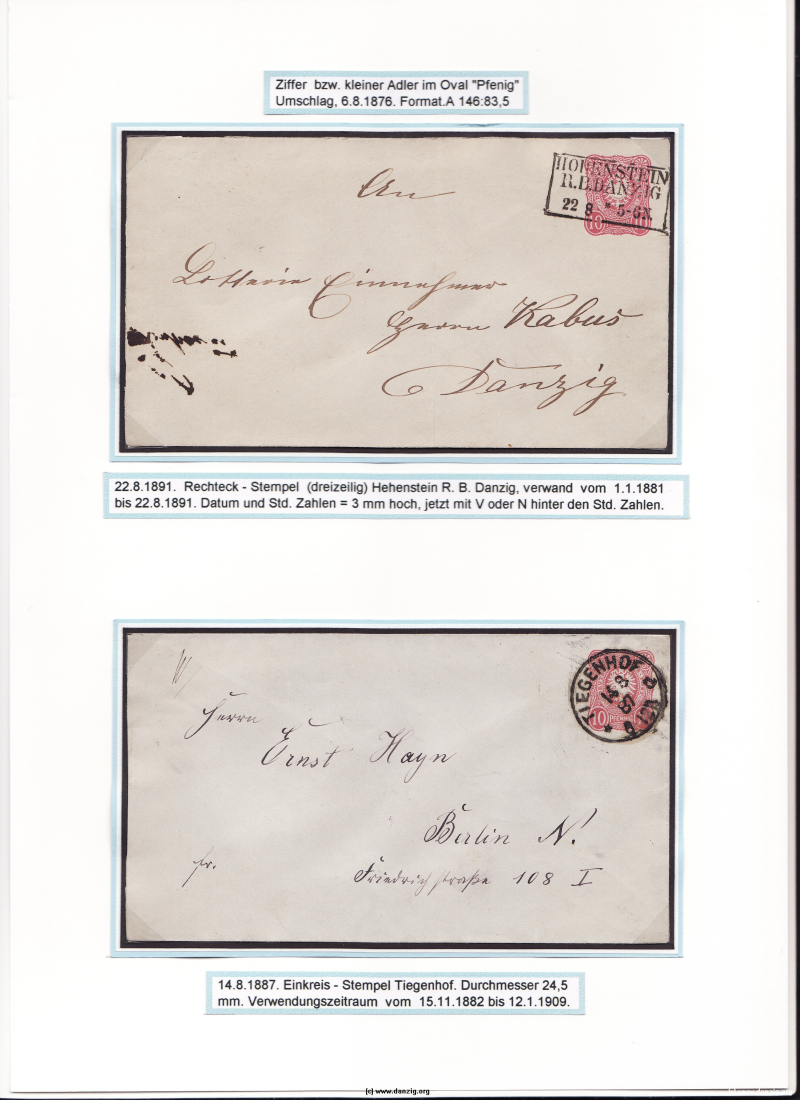 Ziffer bzw. kleiner Adler im Oval "Pfenig"
Umschlag, 6.8.1876. Format.A 146:83,5
HOHENSTEIN
R.B.DANZIG
22 8 * 5-6N.
10
An
Lotterie Einnehmer
Herrn Kabus
Danzig
22.8.1891. Rechteck - Stempel (dreizeilig) Hehenstein R. B. Danzig, verwand vom 1.1.1881
bis 22.8.1891. Datum und Std. Zahlen = 3 mm hoch, jetzt mit V oder N hinter den Std. Zahlen.
TIEGENHOF
14 8
10 PFENNIG
Herrn
Ernst Hayn
Berlin N!
fr.
Friedrichstraße 108 I
14.8.1887. Einkreis - Stempel Tiegenhof. Durchmesser 24,5
mm. Verwendungszeitraum vom 15.11.1882 bis 12.1.1909.
(c) www.danzig.org